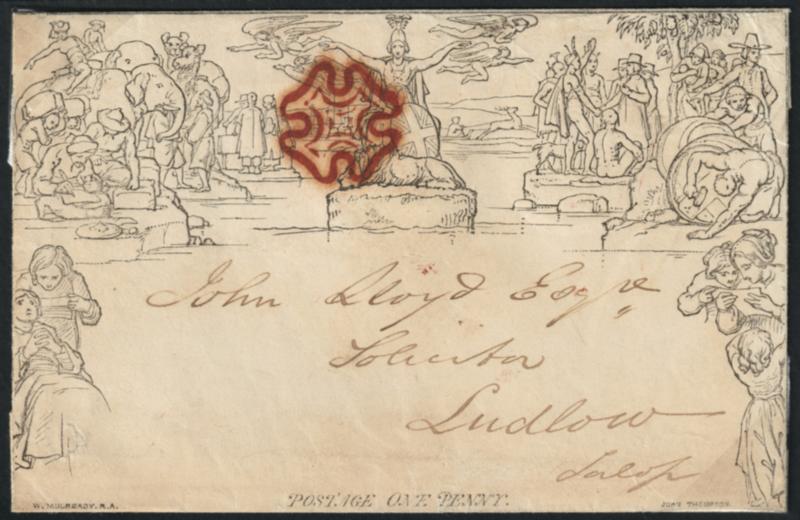 John Lloyd Esqre
Solicitor
Ludlow
Salop
POSTAGE ONE PENNY.
W. MULREADY. R.A.
JOHN THOMPSON